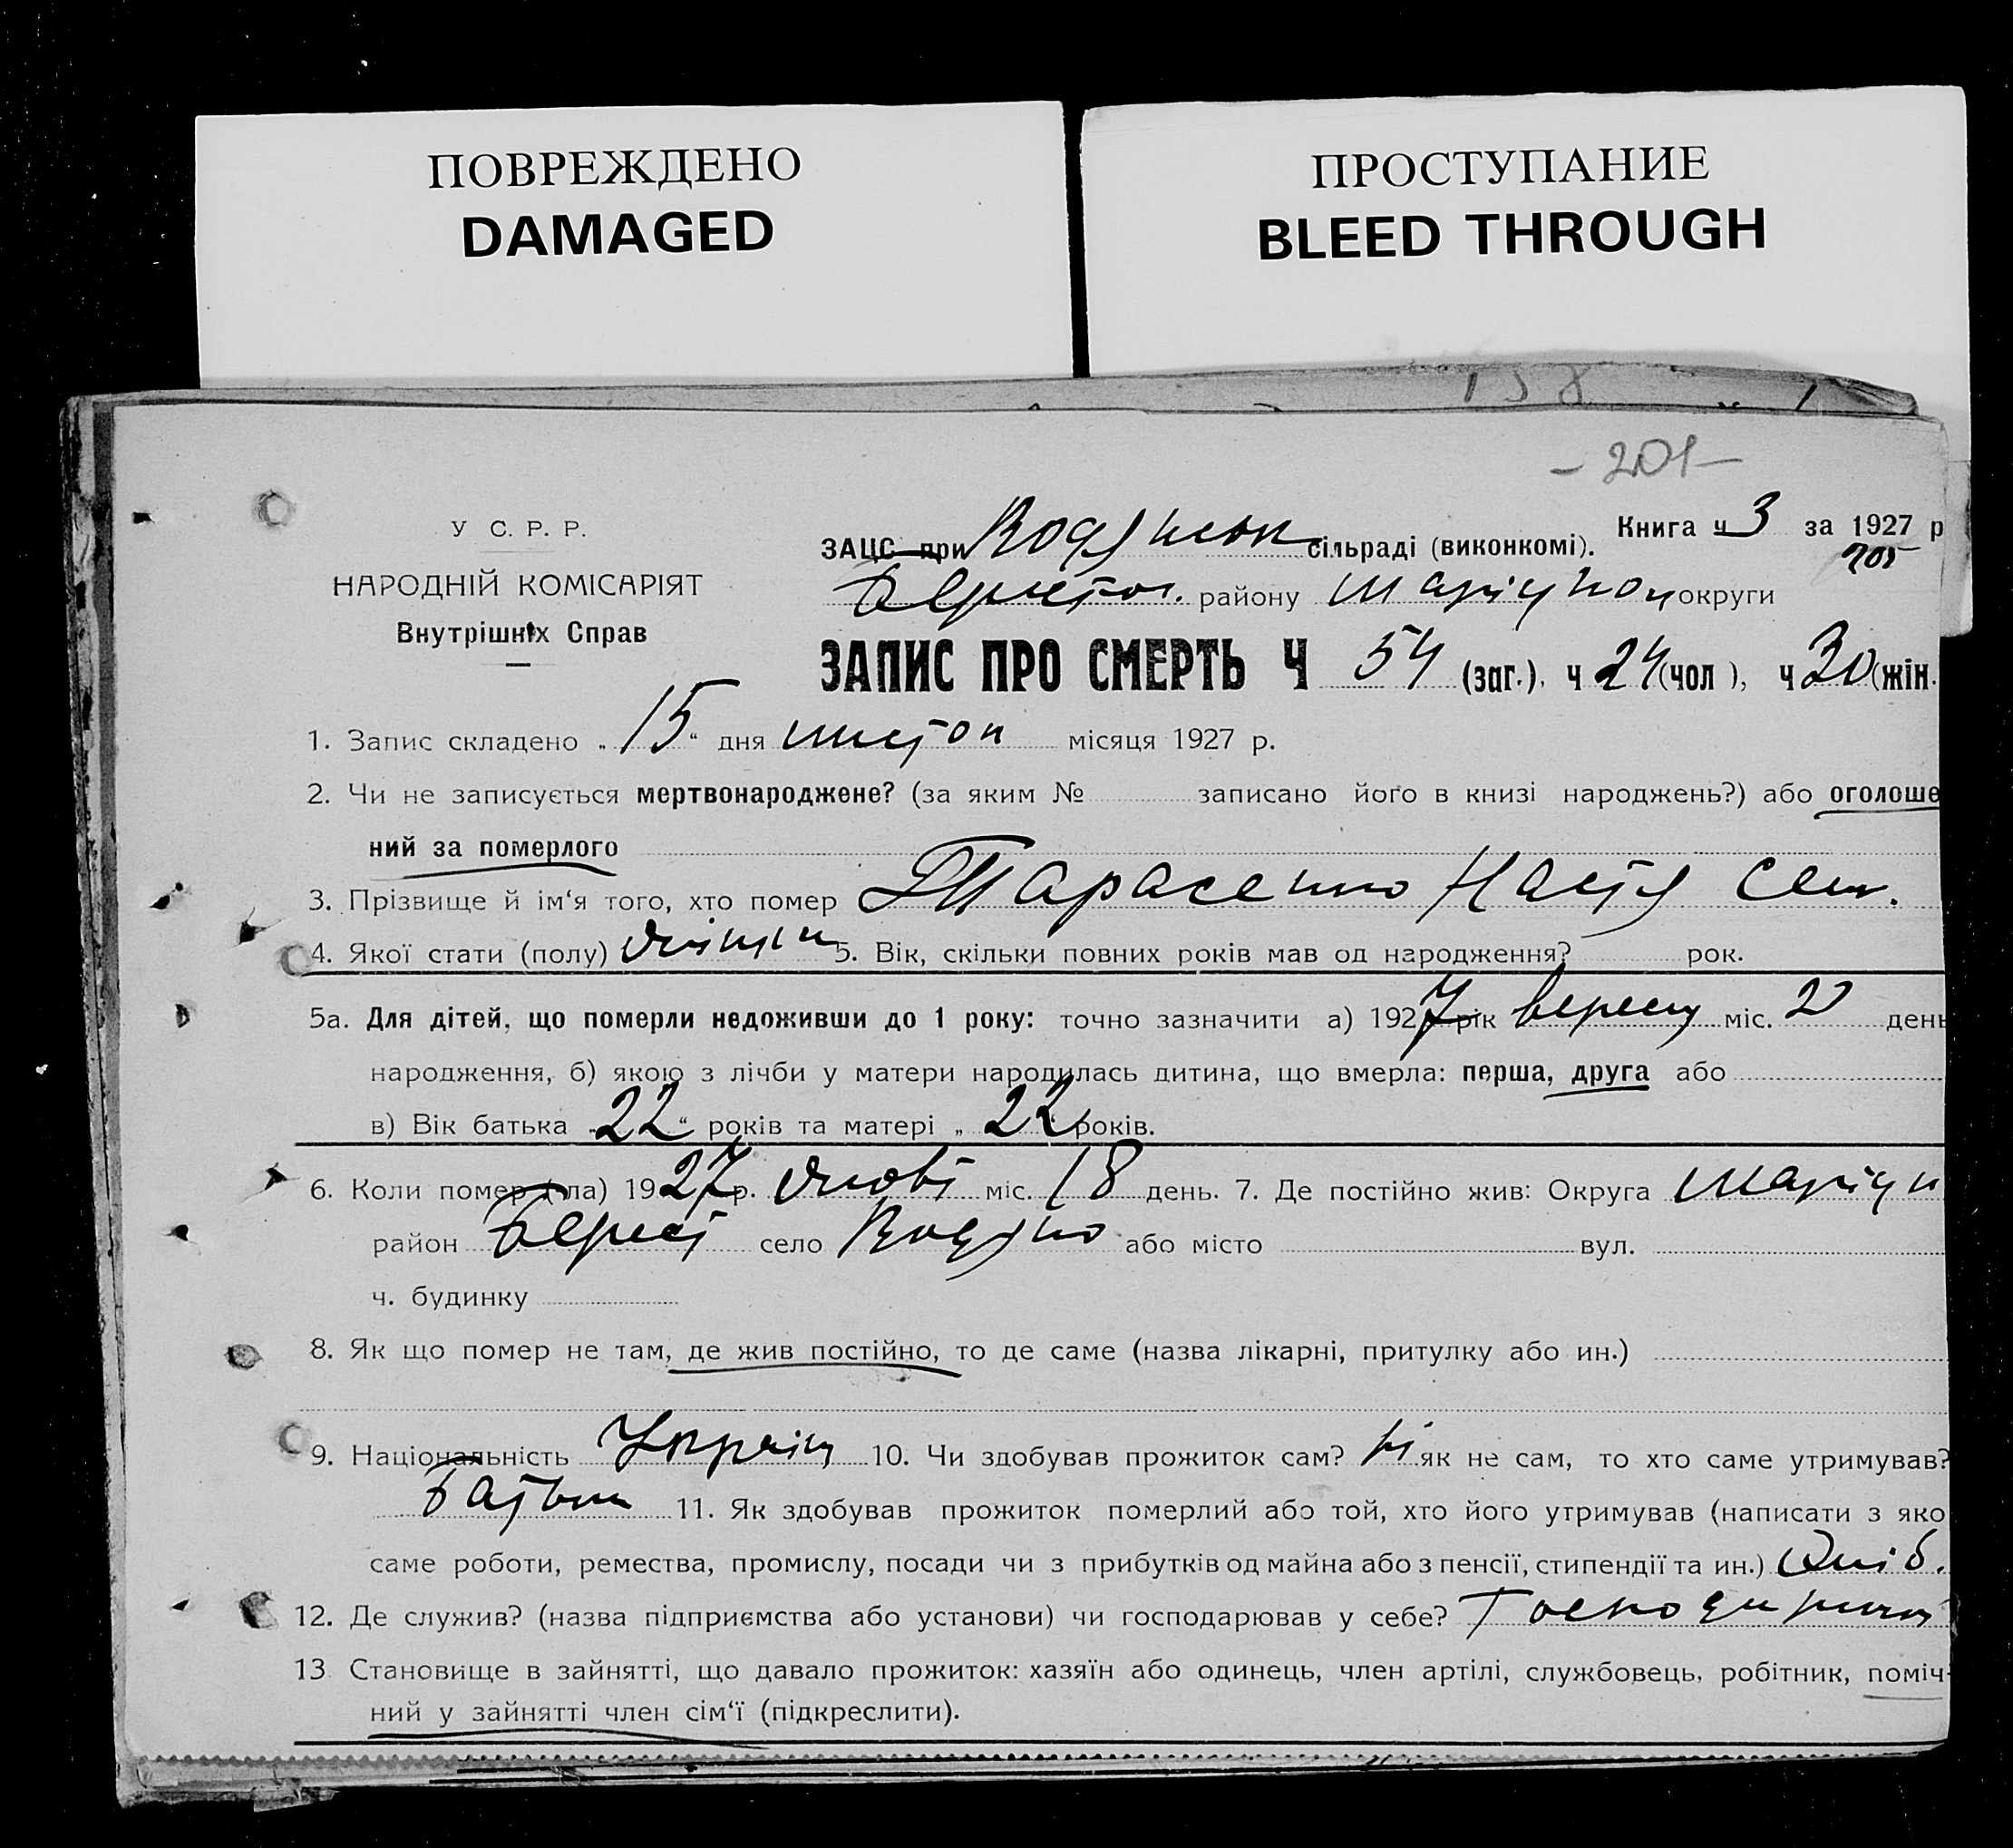 ПОВРЕЖДЕНО
DAMAGED
ПРОСТУПАНИЕ
BLEED THROUGH
158
- 201 -
У С. Р. Р.
НАРОДНІЙ КОМІСАРІЯТ
Внутрішніх Справ
ЗАЦС при Водянськ сільраді (виконкомі). Книга ч 3 за 1927 р
205
Берестов. району Маріупол округи
ЗАПИС ПРО СМЕРТЬ Ч 54 (заг.), ч 24 (чол), ч 30 (жін.
1. Запис складено „15“ дня листоп місяця 1927 р.
2. Чи не записується мертвонароджене? (за яким № записано його в книзі народжень?) або оголоше
ний за померлого
3. Прізвище й ім'я того, хто помер Тарасенко Настя Сем.
4. Якої стати (полу) жіноч 5. Вік, скільки повних років мав од народження? рок.
5а. Для дітей, що померли недоживши до 1 року: точно зазначити а) 1927 рік вересн міс. 20 день
народження, б) якою з лічби у матери народилась дитина, що вмерла: перша, друга або
в) Вік батька „22“ років та матері „22“ років.
6. Коли помер (ла) 1927 р. жовт міс. 18 день. 7. Де постійно жив: Округа Маріуп
район Берест село Водяно або місто вул.
ч. будинку
8. Як що помер не там, де жив постійно, то де саме (назва лікарні, притулку або ин.)
9. Національність Україн 10. Чи здобував прожиток сам? Ні як не сам, то хто саме утримував?
Батьки 11. Як здобував прожиток померлий або той, хто його утримував (написати з яко
саме роботи, ремества, промислу, посади чи з прибутків од майна або з пенсії, стипендії та ин.) Хліб.
12. Де служив? (назва підприємства або установи) чи господарював у себе?
13 Становище в зайнятті, що давало прожиток: хазяїн або одинець, член артілі, службовець, робітник, поміч-
ний у зайнятті член сім'ї (підкреслити).